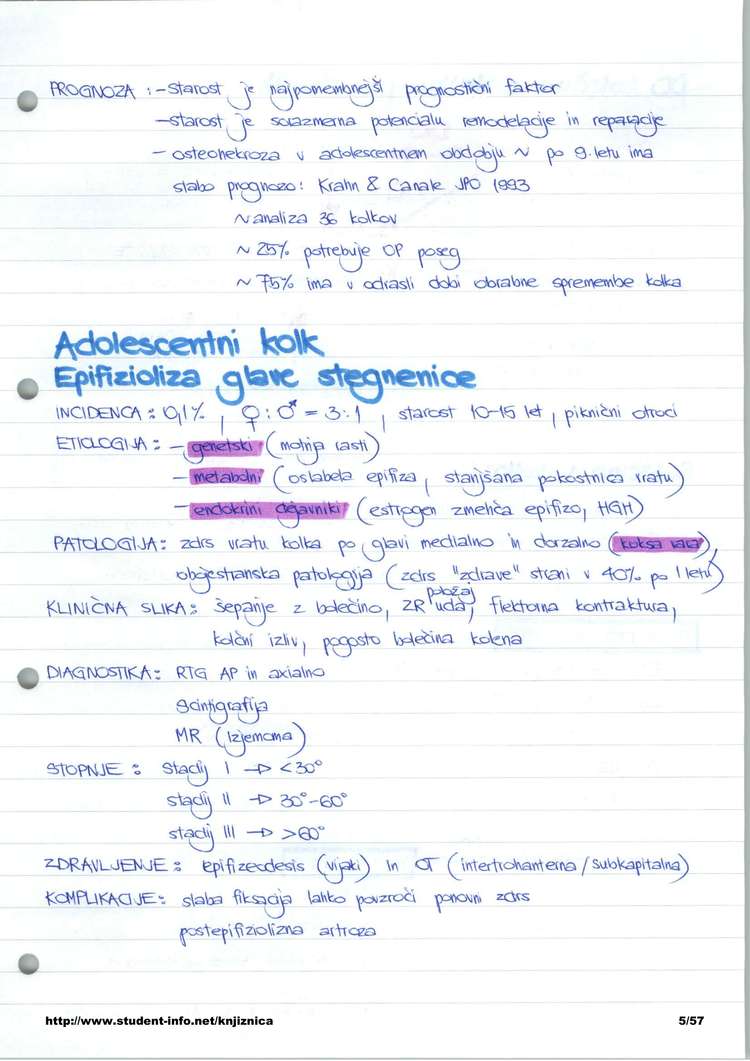 PROGNOZA : - starost je najpomembnejši prognostični faktor
- starost je sorazmerna potencialu remodelacije in reparacije
- osteonekroza v adolescentnem obdobju ~ po 9. letu ima
slabo prognozo: Krahn & Canale JPO 1993
~ analiza 36 kolkov
~ 25% potrebuje OP poseg
~ 75% ima v odrasli dobi obrabne spremembe kolka
Adolescentni kolk
Epifizioliza glave stegnenice
INCIDENCA : 0,1% , ♀ : ♂ = 3:1 , starost 10-15 let , piknični otroci
ETIOLOGIJA : - genetski (motnja rasti)
- metabolni (oslabela epifiza, stanjšana pokostnica vratu)
- endokrini dejavniki (estrogen zmehča epifizo, HGH)
PATOLOGIJA : zdrs vratu kolka po glavi medialno in dorzalno (koksa vara),
obojestranska patologija (zdrs "zdrave" strani v 40% po 1 letu)
KLINIČNA SLIKA : šepanje z bolečino, ZR položaj uda, flektorna kontraktura,
kolčni izliv, pogosto bolečina kolena
DIAGNOSTIKA : RTG AP in axialno
Scintigrafija
MR (izjemoma)
STOPNJE : Stadij I → <30°
stadij II → 30°-60°
stadij III → >60°
ZDRAVLJENJE : epifizeodesis (vijaki) in OT (intertrohanterna / subkapitalna)
KOMPLIKACIJE : slaba fiksacija lahko povzroči ponovni zdrs
postepifiziolizna artroza
http://www.student-info.net/knjiznica 5/57